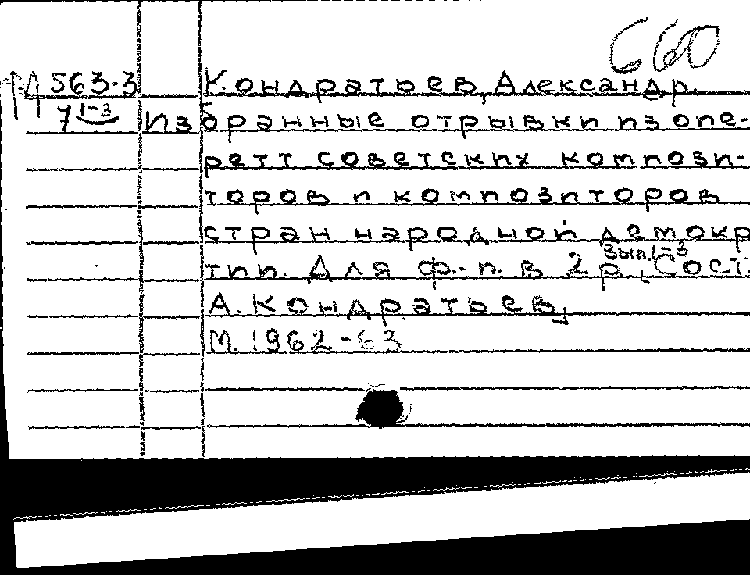 660
563-3 Кондратьев, Александр.
7 1-3 Избранные отрывки из опе-
ретт советских компози-
торов и композиторов
стран народной демокр
тии. Для ф.-п. в 2 р. Вып. 1-3 Сост.
А. Кондратьев.
М. 1962-63